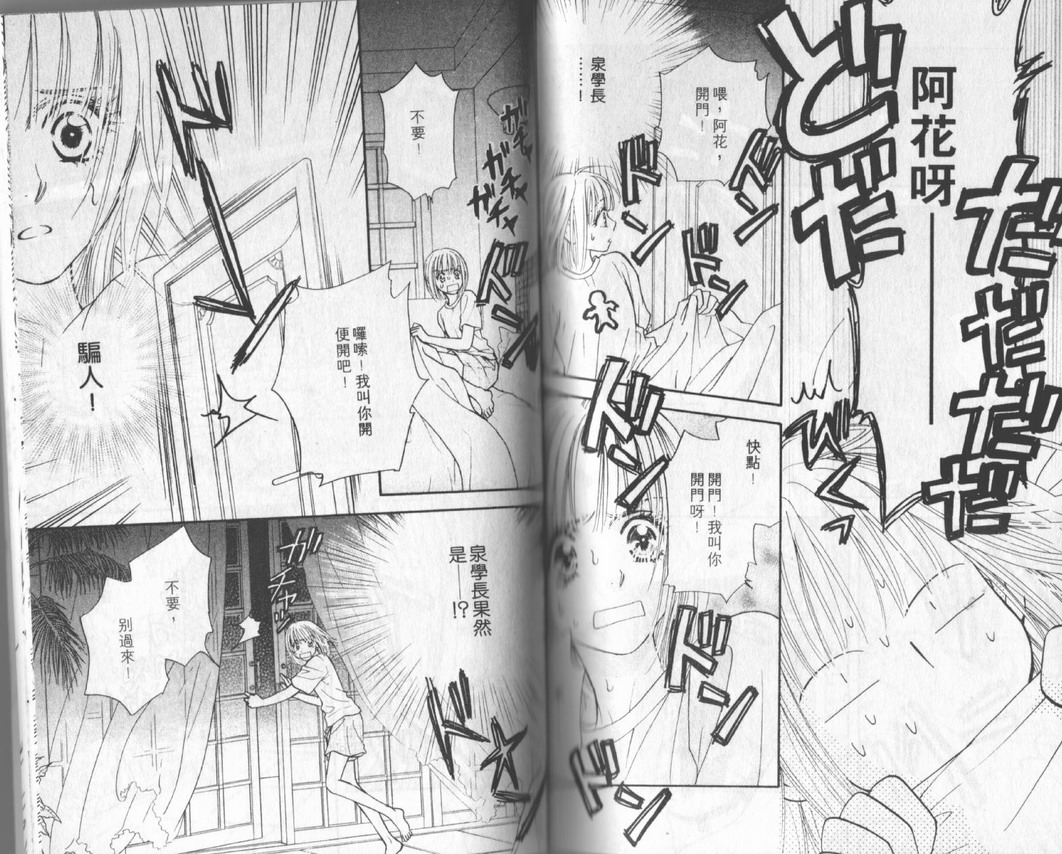 阿花呀——
どだ
だだだだ
喂，阿花，
開門！
泉學長
……！
ドン
ドン
ドン
快點！
開門！我叫你
開門呀！
ドン
ドン
ドン
ガチャ
ガチャ
ガチャ
不要！
ドン
囉嗦！我叫你開
便開吧！
ドン
騙人！
泉學長果然
是——!?
ド
ガチャッ
不要，
別過來！